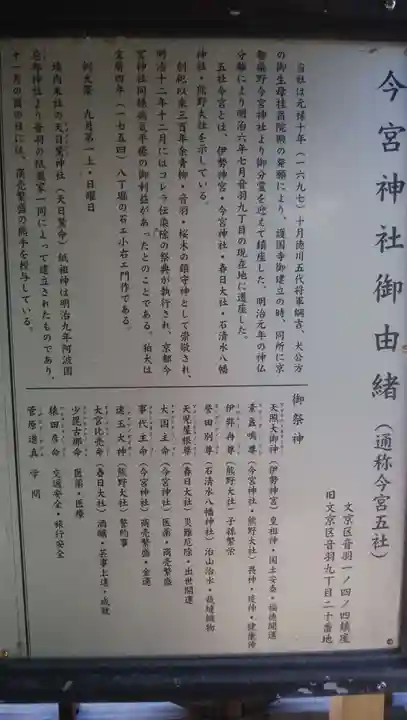 今宮神社御由緒（通称今宮五社）
文京区音羽一ノ四ノ四鎮座
旧文京区音羽九丁目二十番地
当社は元禄十年（一六九七）十月徳川五代将軍綱吉、犬公方
の御生母桂昌院殿の発願により、護国寺御建立の時、同所に京
都紫野今宮神社より御分霊を迎えて鎮座した、明治元年の神仏
分離により明治六年七月音羽九丁目の現在地に遷座した。
五社今宮とは、伊勢神宮・今宮神社・春日大社・石清水八幡
神社・熊野大社を示している。
創祀以来三百年余青柳・音羽・桜木の鎮守神として崇敬され、
明治十二年十二月にはコレラ伝染除の祭典が執行され、京都今
宮神社同様病気平癒の御利益があったとのことである。狛犬は
宝暦四年（一七五四）八丁堀の石工小右エ門作である。
例大祭　九月第二土・日曜日
境内末社の天日鷲神社（天日鷲命）紙祖神は明治九年阿波国
忌部神社より音羽の紙漉家一同によって建立されたものであり、
十一月の酉の日には、商売繁盛の熊手を授与している。
御祭神
天照大御神（伊勢神宮）皇祖神・国土安泰・福徳開運
素盞嗚尊（今宮神社・熊野大社）農神・疫神・健康神
伊弉冉尊（熊野大社）子孫繁栄
誉田別尊（石清水八幡神社）治山治水・裁縫織物
天児屋根尊（春日大社）災難厄除・出世開運
大国主命（今宮神社）医薬・商売繁盛
事代主命（今宮神社）商売繁盛・金運
速玉大神（熊野大社）誓約事
大宮比売命（春日大社）酒醸・芸事上達・成就
少毘古那命　医薬・医療
猿田彦命　交通安全・旅行安全
菅原道真　学問